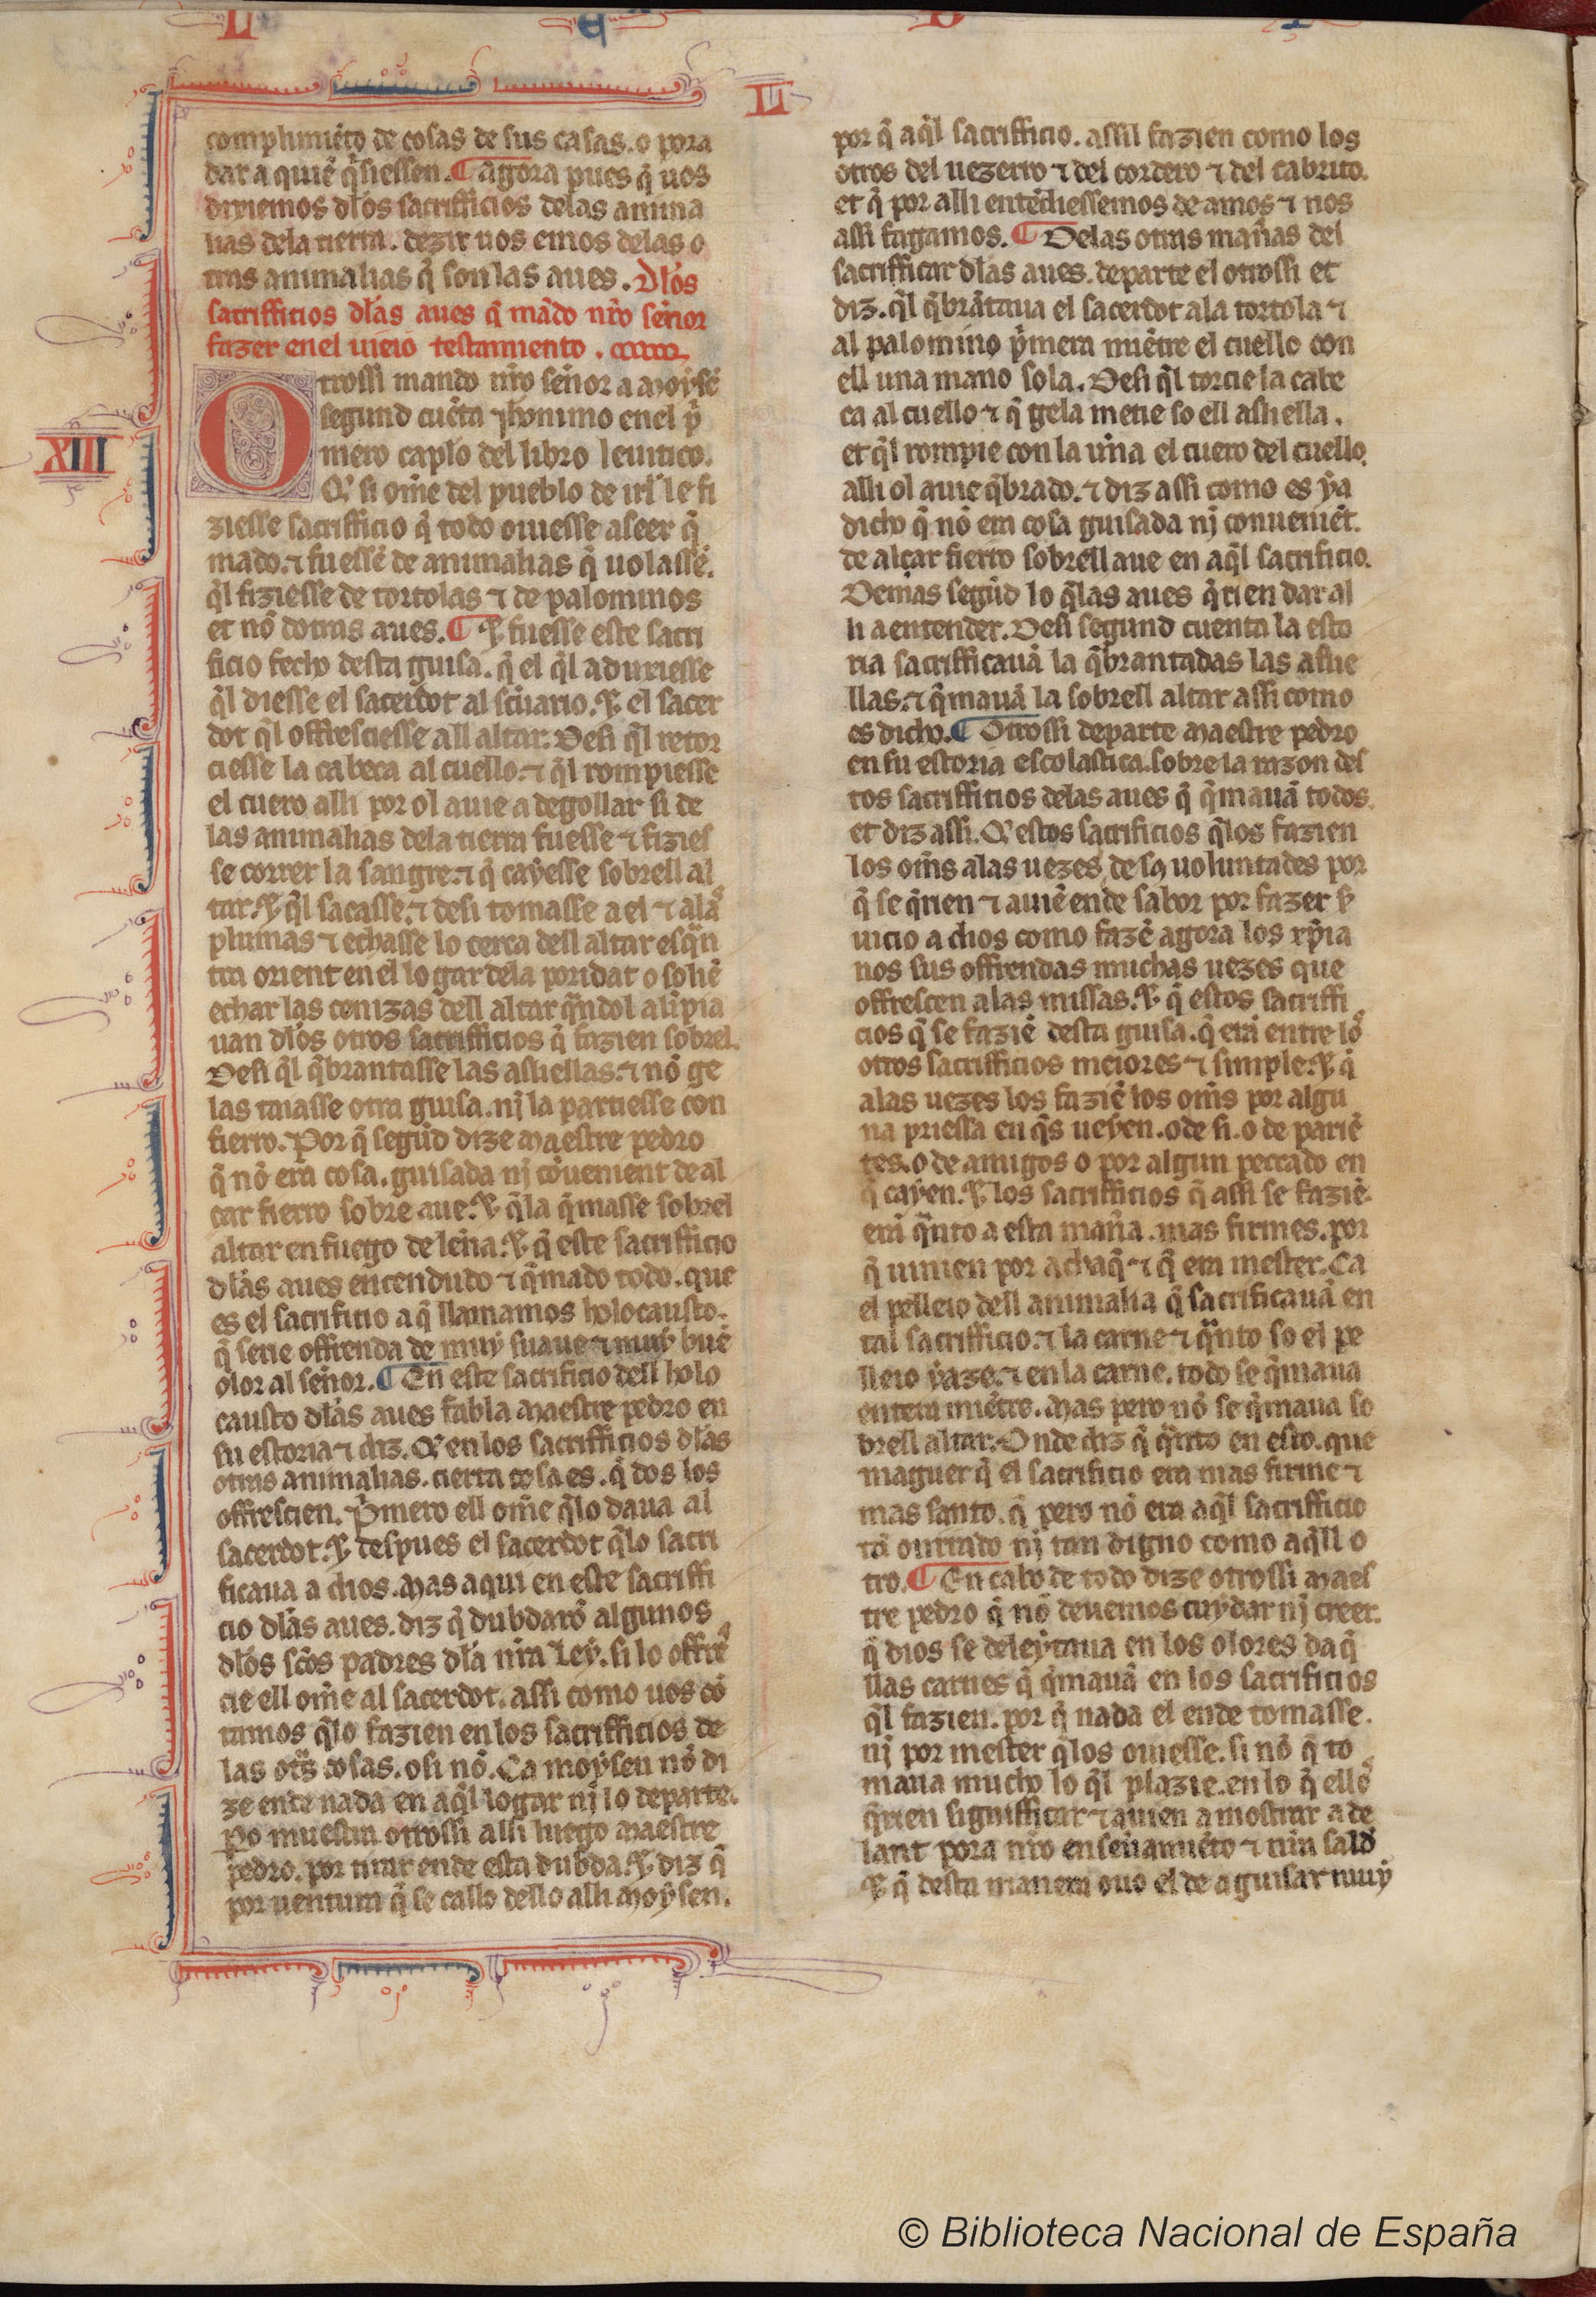 L
complimiẽto de cosas de sus casas. o pora
dar a quiẽ q̃siessen. ¶ agora pues q̃ uos
dixiemos dlos sacrifficios delas anima
lias dela tierra. dezir uos emos delas o
tras animalias q̃ son las aues. Dlos
sacrifficios dlas aues q̃ mãdo nr̃o sen̄or
fazer enel uieio testamiento.
XIII
Otrossi mando nr̃o sen̄or a moysẽ
segund cuẽta ihonimo enel p̃
mero caplo del libro leuitico.
Q̃ si om̃e del pueblo de irl̃ le fi
ziesse sacrifficio q̃ todo ouiesse a seer q̃
mado. ⁊ fuessẽ de animalias q̃ uolassẽ.
q̃l fiziesse de tortolas ⁊ de palominos
et nõ dotras aues. ¶ ⁊ fuesse este sacri
ficio fecho desta guisa. q̃ el q̃l aduxiesse
q̃l diesse el sacerdot al sc̃uario. ⁊ el sacer
dot q̃l offresciesse all altar. Desi q̃l retor
ciesse la cabeça al cuello. ⁊ q̃l rompiesse
el cuero alli por ol auie a degollar si de
las animalias dela tierra fuesse ⁊ fizies
se correr la sangre. ⁊ q̃ cayesse sobrell al
tar. ⁊ q̃l sacasse. ⁊ desi tomasse a el ⁊ alas
plumas ⁊ echasse lo cerca dell altar esq̃n
tra orient enel logar dela poridat o soliẽ
echar las cenizas dell altar q̃ndol alĩpia
uan dlos otros sacrifficios q̃ fazien sobrel.
Desi q̃l q̃brantasse las asliellas. ⁊ nõ ge
las taiasse otra guisa. nj la partiesse con
fierro. Por q̃ segũd dize maestre pedro
q̃ nõ era cosa. guisada nj cõuenient de al
çar fierro sobre aue. ⁊ q̃la q̃masse sobrel
altar en fuego de len̄a. ⁊ q̃ este sacrifficio
dlas aues encendudo ⁊ q̃mado todo. que
es el sacrificio a q̃ llamamos holocausto.
q̃ serie offrenda de muy suaue ⁊ muy buẽ
olor al sen̄or. ¶ En este sacrificio dell holo
causto dlas aues fabla maestre pedro en
su estoria ⁊ diz. Q̃ en los sacrifficios dlas
otras animalias. cierta cosa es. q̃ dos los
offrescien. P̃mero ell om̃e q̃lo daua al
sacerdot. ⁊ despues el sacerdot q̃lo sacri
ficaua a dios. Mas aqui en este sacriffi
cio dlas aues. diz q̃ dubdarõ algunos
dlos sc̃os padres dla nr̃a ley. si lo offres
cie ell om̃e al sacerdot. assi como uos cõ
tamos q̃lo fazien en los sacrifficios de
las ot̃s cosas. o si nõ. Ca moysen nõ di
ze ende nada en aq̃l logar nj lo departe.
Po muestra otrossi alli luego maestre
pedro. por tirar ende esta dubda. ⁊ diz q̃
por uentura q̃ se callo dello alli moysen.
por q̃ aq̃l sacrifficio. assil fazien como los
otros del uezerro ⁊ del cordero ⁊ del cabrito.
et q̃ por alli entẽdiessemos de amos ⁊ nos
assi fagamos. ¶ Delas otras man̄as del
sacrifficar dlas aues. departe el otrossi et
diz. q̃l q̃brãtaua el sacerdot ala tortola ⁊
al palomino p̃mera miẽtre el cuello con
ell una mano sola. Desi q̃l torcie la cabe
ça al cuello ⁊ q̃ gela metie so ell asliella.
et q̃l rompie con la un̄a el cuero del cuello.
alli ol auie q̃brado. ⁊ diz assi como es ya
dicho q̃ nõ era cosa guisada nj conueniẽt.
de alçar fierro sobrell aue en aq̃l sacrificio.
Demas segũd lo q̃las aues q̃rien dar al
li a entender. Desi segund cuenta la esto
ria sacrifficauã la q̃brantadas las aslie
llas. ⁊ q̃mauã la sobrell altar assi como
es dicho. ¶ Otrossi departe maestre pedro
en su estoria escolastica. sobre la razon des
tos sacrifficios delas aues q̃ q̃mauã todos.
et diz assi. Q̃ estos sacrificios q̃los fazien
los om̃s alas uezes de sus uoluntades por
q̃ se q̃rien ⁊ auiẽ ende sabor por fazer ser
uicio a dios como fazẽ agora los xp̃ia
nos sus offrendas muchas uezes que
offrescen alas missas. ⁊ q̃ estos sacriffi
cios q̃ se faziẽ desta guisa. q̃ erã entre los
otros sacrifficios meiores ⁊ simple. ⁊ q̃
alas uezes los faziẽ los om̃s por algu
na priessa en q̃s ueyen. o de si. o de pariẽ
tes. o de amigos o por algun peccado en
q̃ cayen. ⁊ los sacrifficios q̃ assi se faziẽ.
erã q̃nto a esta man̄a. mas firmes. por
q̃ uinien por achaq̃ ⁊ q̃ era mester. Ca
el pelleio dell animalia q̃ sacrificauã en
tal sacrifficio. ⁊ la carne ⁊ q̃nto so el pe
lleio yaze. ⁊ en la carne. todo se q̃maua
entera miẽtre. Mas pero nõ se q̃maua so
brell altar. Onde diz q̃ q̃nto en esto. que
maguer q̃ el sacrificio era mas firme ⁊
mas santo. q̃ pero nõ era aq̃l sacrifficio
tã onrrado nj tan digno como aq̃ll o
tro. ¶ En cabo de todo dize otrossi maes
tre pedro q̃ nõ deuemos cuydar nj creer.
q̃ dios se deleytaua en los olores daq̃
llas carnes q̃ q̃mauã en los sacrificios
q̃l fazien. por q̃ nada el ende tomasse.
nj por mester q̃los ouiesse. si nõ q̃ to
maua mucho lo q̃l plazie. en lo q̃ ellos
q̃rien significar ⁊ auien a mostrar a de
lant pora nr̃o ensen̄amiẽto ⁊ nr̃a salud
⁊ q̃ desta manera ouo el de aguisar muy
© Biblioteca Nacional de España